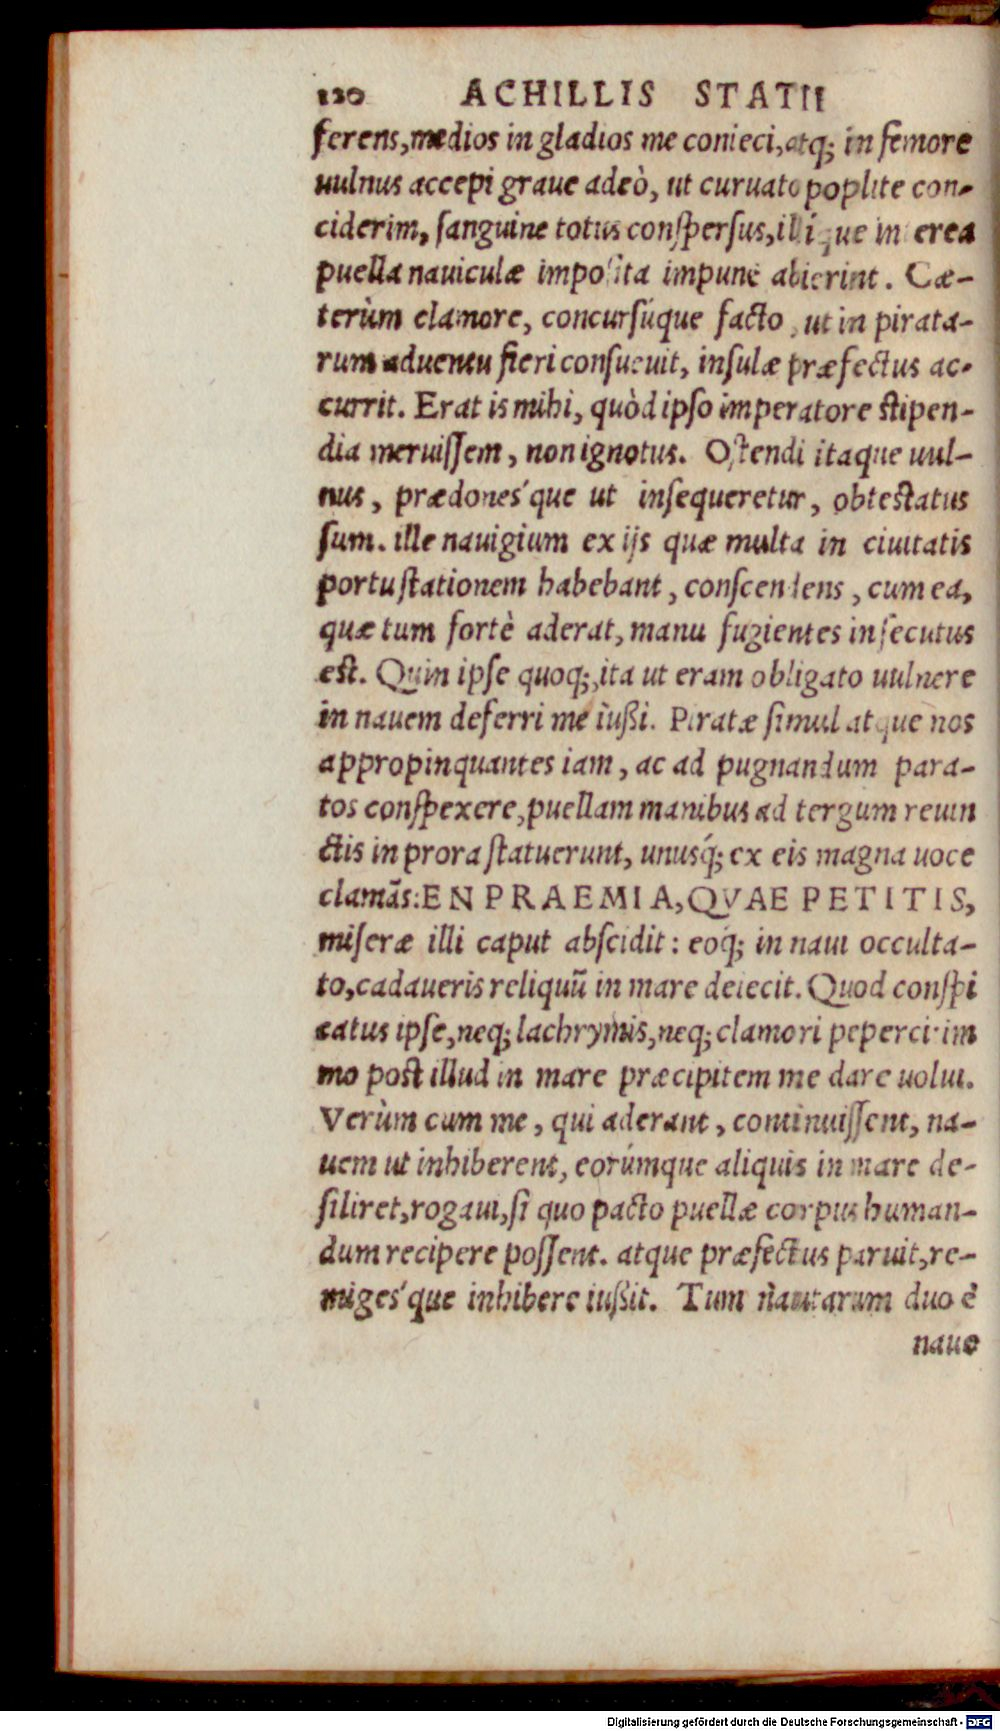 120 ACHILLIS STATII
ferens, medios in gladios me conieci, atq; in femore
uulnus accepi graue adeò, ut curuato poplite con-
ciderim, sanguine totus conspersus, illíque interea
puella nauiculæ imposita impune abierint. Cæ-
terùm clamore, concursúque facto, ut in pirata-
rum aduentu fieri consueuit, insulæ præfectus ac-
currit. Erat is mihi, quòd ipso imperatore stipen-
dia meruissem, non ignotus. Ostendi itaque uul-
nus, prædones´que ut insequeretur, obtestatus
sum. ille nauigium ex ijs quæ multa in ciuitatis
portu stationem habebant, conscendens, cum ea,
quæ tum fortè aderat, manu fugientes insecutus
est. Quin ipse quoq;, ita ut eram obligato uulnere
in nauem deferri me iußi. Piratæ simul atque nos
appropinquantes iam, ac ad pugnandum para-
tos conspexere, puellam manibus ad tergum reuin
ctis in prora statuerunt, unusq́; ex eis magna uoce
clamãs: EN PRAEMIA, QVAE PETITIS,
miseræ illi caput abscidit: eoq́; in naui occulta-
to, cadaueris reliquũ in mare deiecit. Quod conspi
catus ipse, neq; lachrymis, neq; clamori peperci: im
mo post illud in mare præcipitem me dare uolui.
Verùm cum me, qui aderant, continuissent, na-
uem ut inhiberent, eorúmque aliquis in mare de-
siliret, rogaui, si quo pacto puellæ corpus human-
dum recipere possent. atque præfectus paruit, re-
miges´que inhibere iußit. Tum nautarum duo è
naue
Digitalisierung gefördert durch die Deutsche Forschungsgemeinschaft - DFG